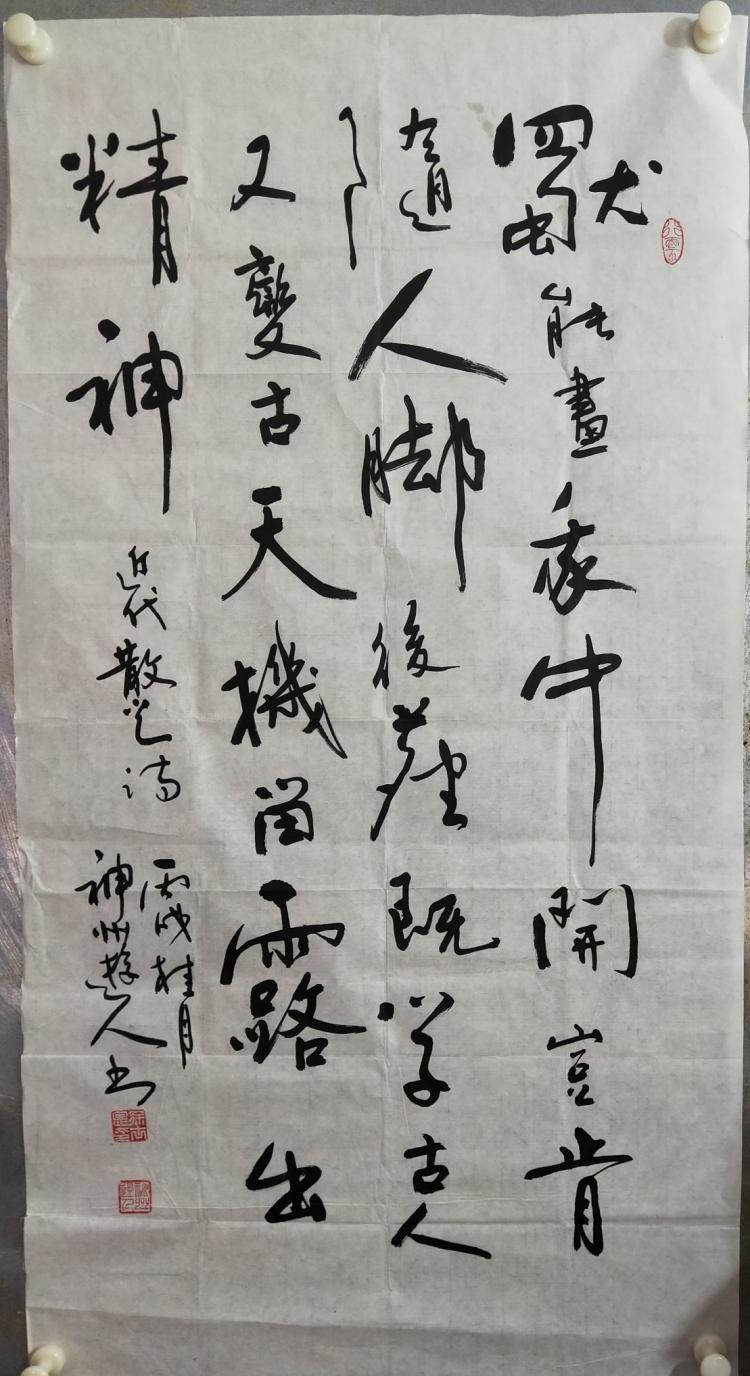 獨能畫家中開豈肯
隨人脚後塵既学古人
又變古天機留露出
精神
近代散之詩
丙戌桂月
神州遊人书